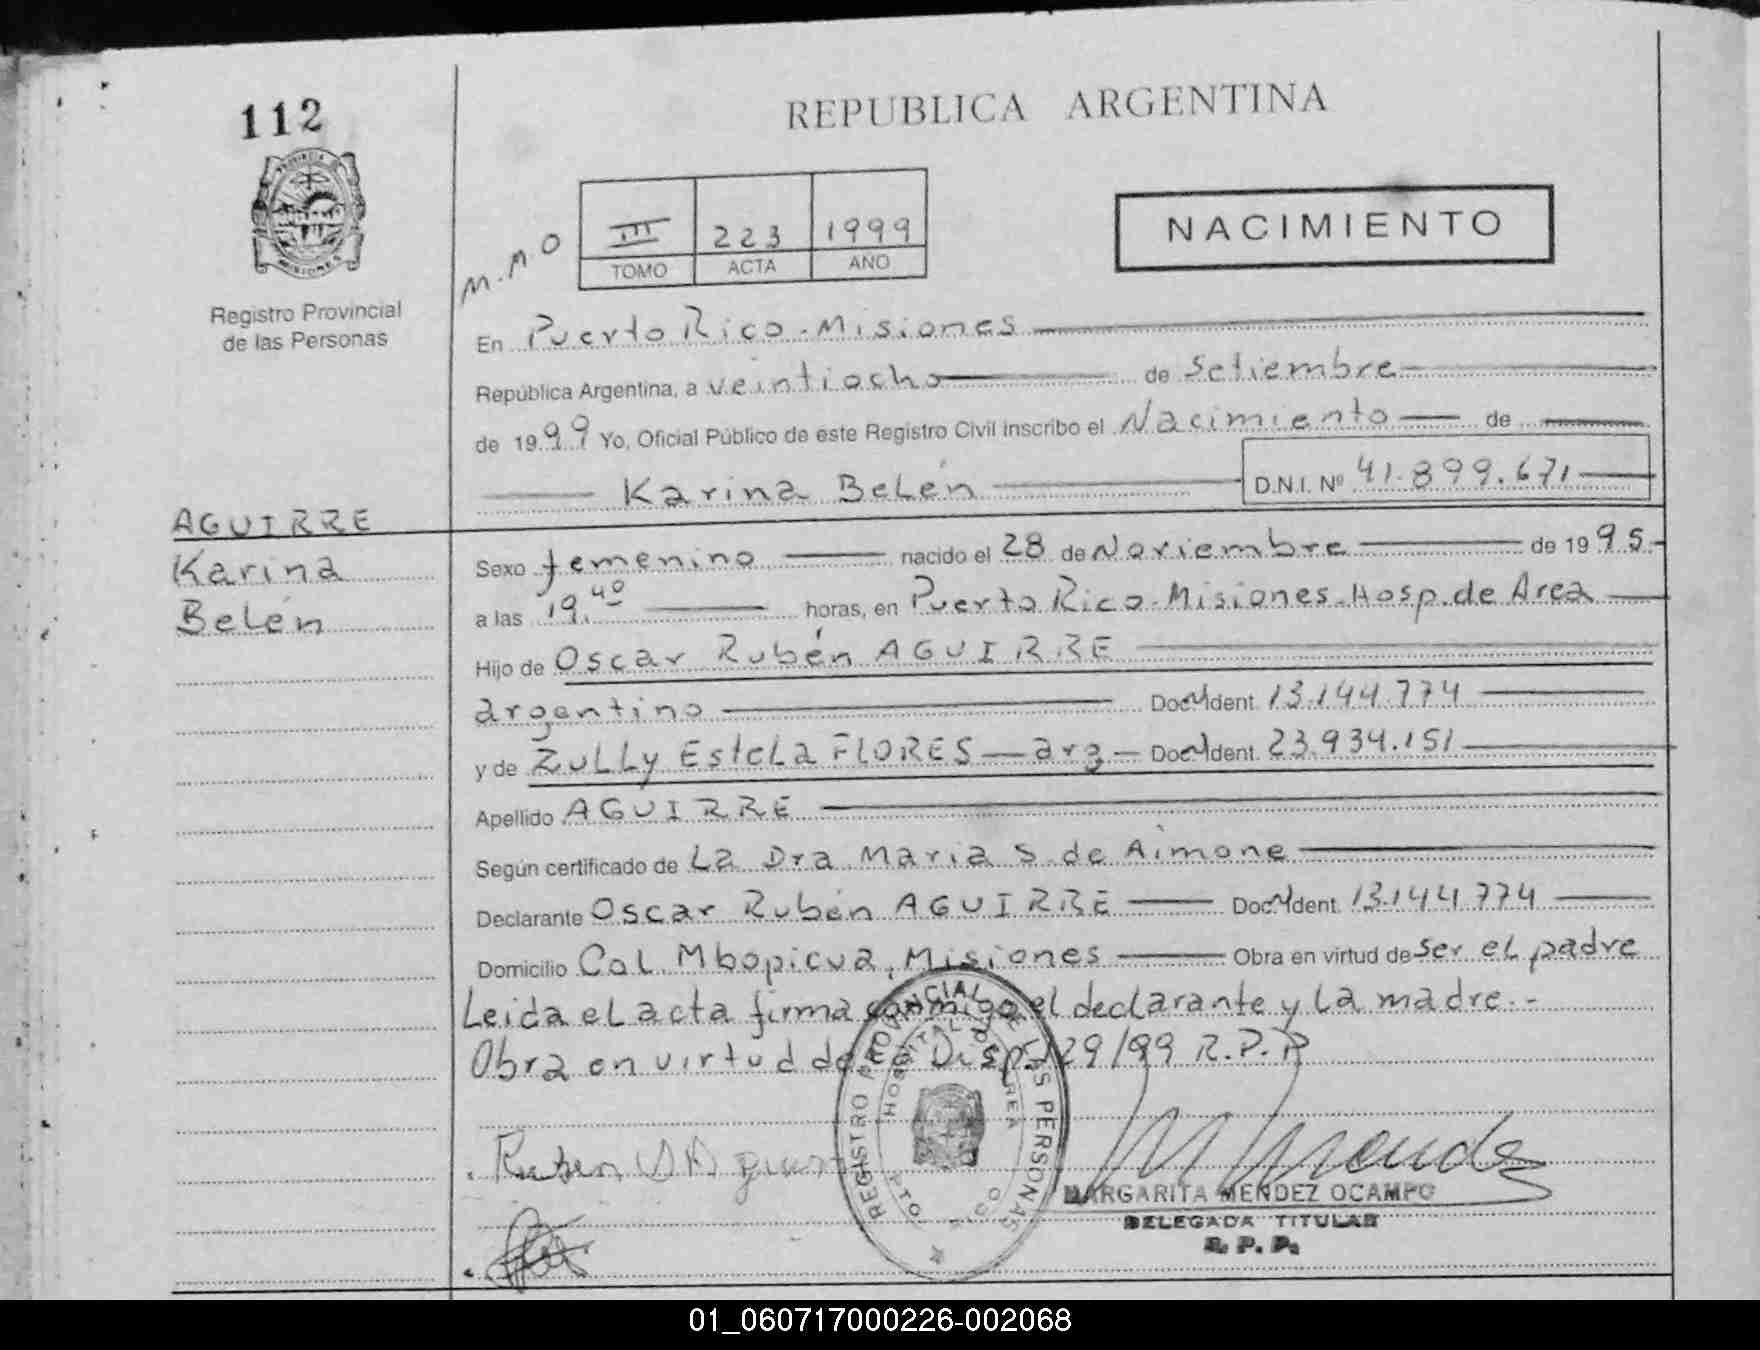 112
REPUBLICA ARGENTINA
PROVINCIA DE
MISIONES
Registro Provincial
de las Personas
M.M.O
III 223 1999
TOMO ACTA AÑO
NACIMIENTO
En Puerto Rico - Misiones
República Argentina, a veintiocho de Setiembre
de 1999 Yo, Oficial Público de este Registro Civil inscribo el Nacimiento de
Karina Belén D.N.I. Nº 41.899.671
AGUIRRE
Karina
Belén
Sexo femenino nacido el 28 de Noviembre de 1995
a las 19.40 horas, en Puerto Rico - Misiones - Hosp. de Area
Hijo de Oscar Rubén AGUIRRE
argentino Doc. Ident. 13.144.774
y de Zully Estela FLORES - arg - Doc. Ident. 23.934.151
Apellido AGUIRRE
Según certificado de La Dra Maria S. de Aimone
Declarante Oscar Rubén AGUIRRE Doc. Ident. 13.144.774
Domicilio Col. Mbopicua, Misiones Obra en virtud de ser el padre
Leida el acta firma conmigo el declarante y la madre.-
Obra en virtud de la Disp. 529/99 R.P.P
REGISTRO PROVINCIAL DE LAS PERSONAS
HOSPITAL DE AREA
PTO. RICO
MARGARITA MENDEZ OCAMPO
DELEGADA TITULAR
R. P. P.
01_060717000226-002068